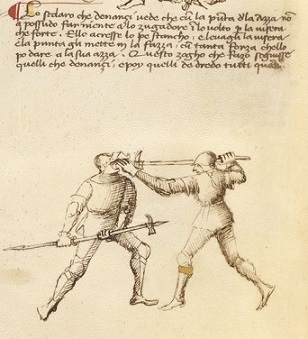 Lo scolaro che denançi vede che cũ la pũta dla Azza nõ
gl possudo far niente allo zugadore ĩ lo volto p la visera
che forte. Ello acresse lo pe stancho, e levagli la visera
e la punta gli mette in la fazza, cũ tanta forza chello
po dare a la sua azza. Questo zogho che fazo seguisse
quelli che denançi, e poy quelli de dredo tutti